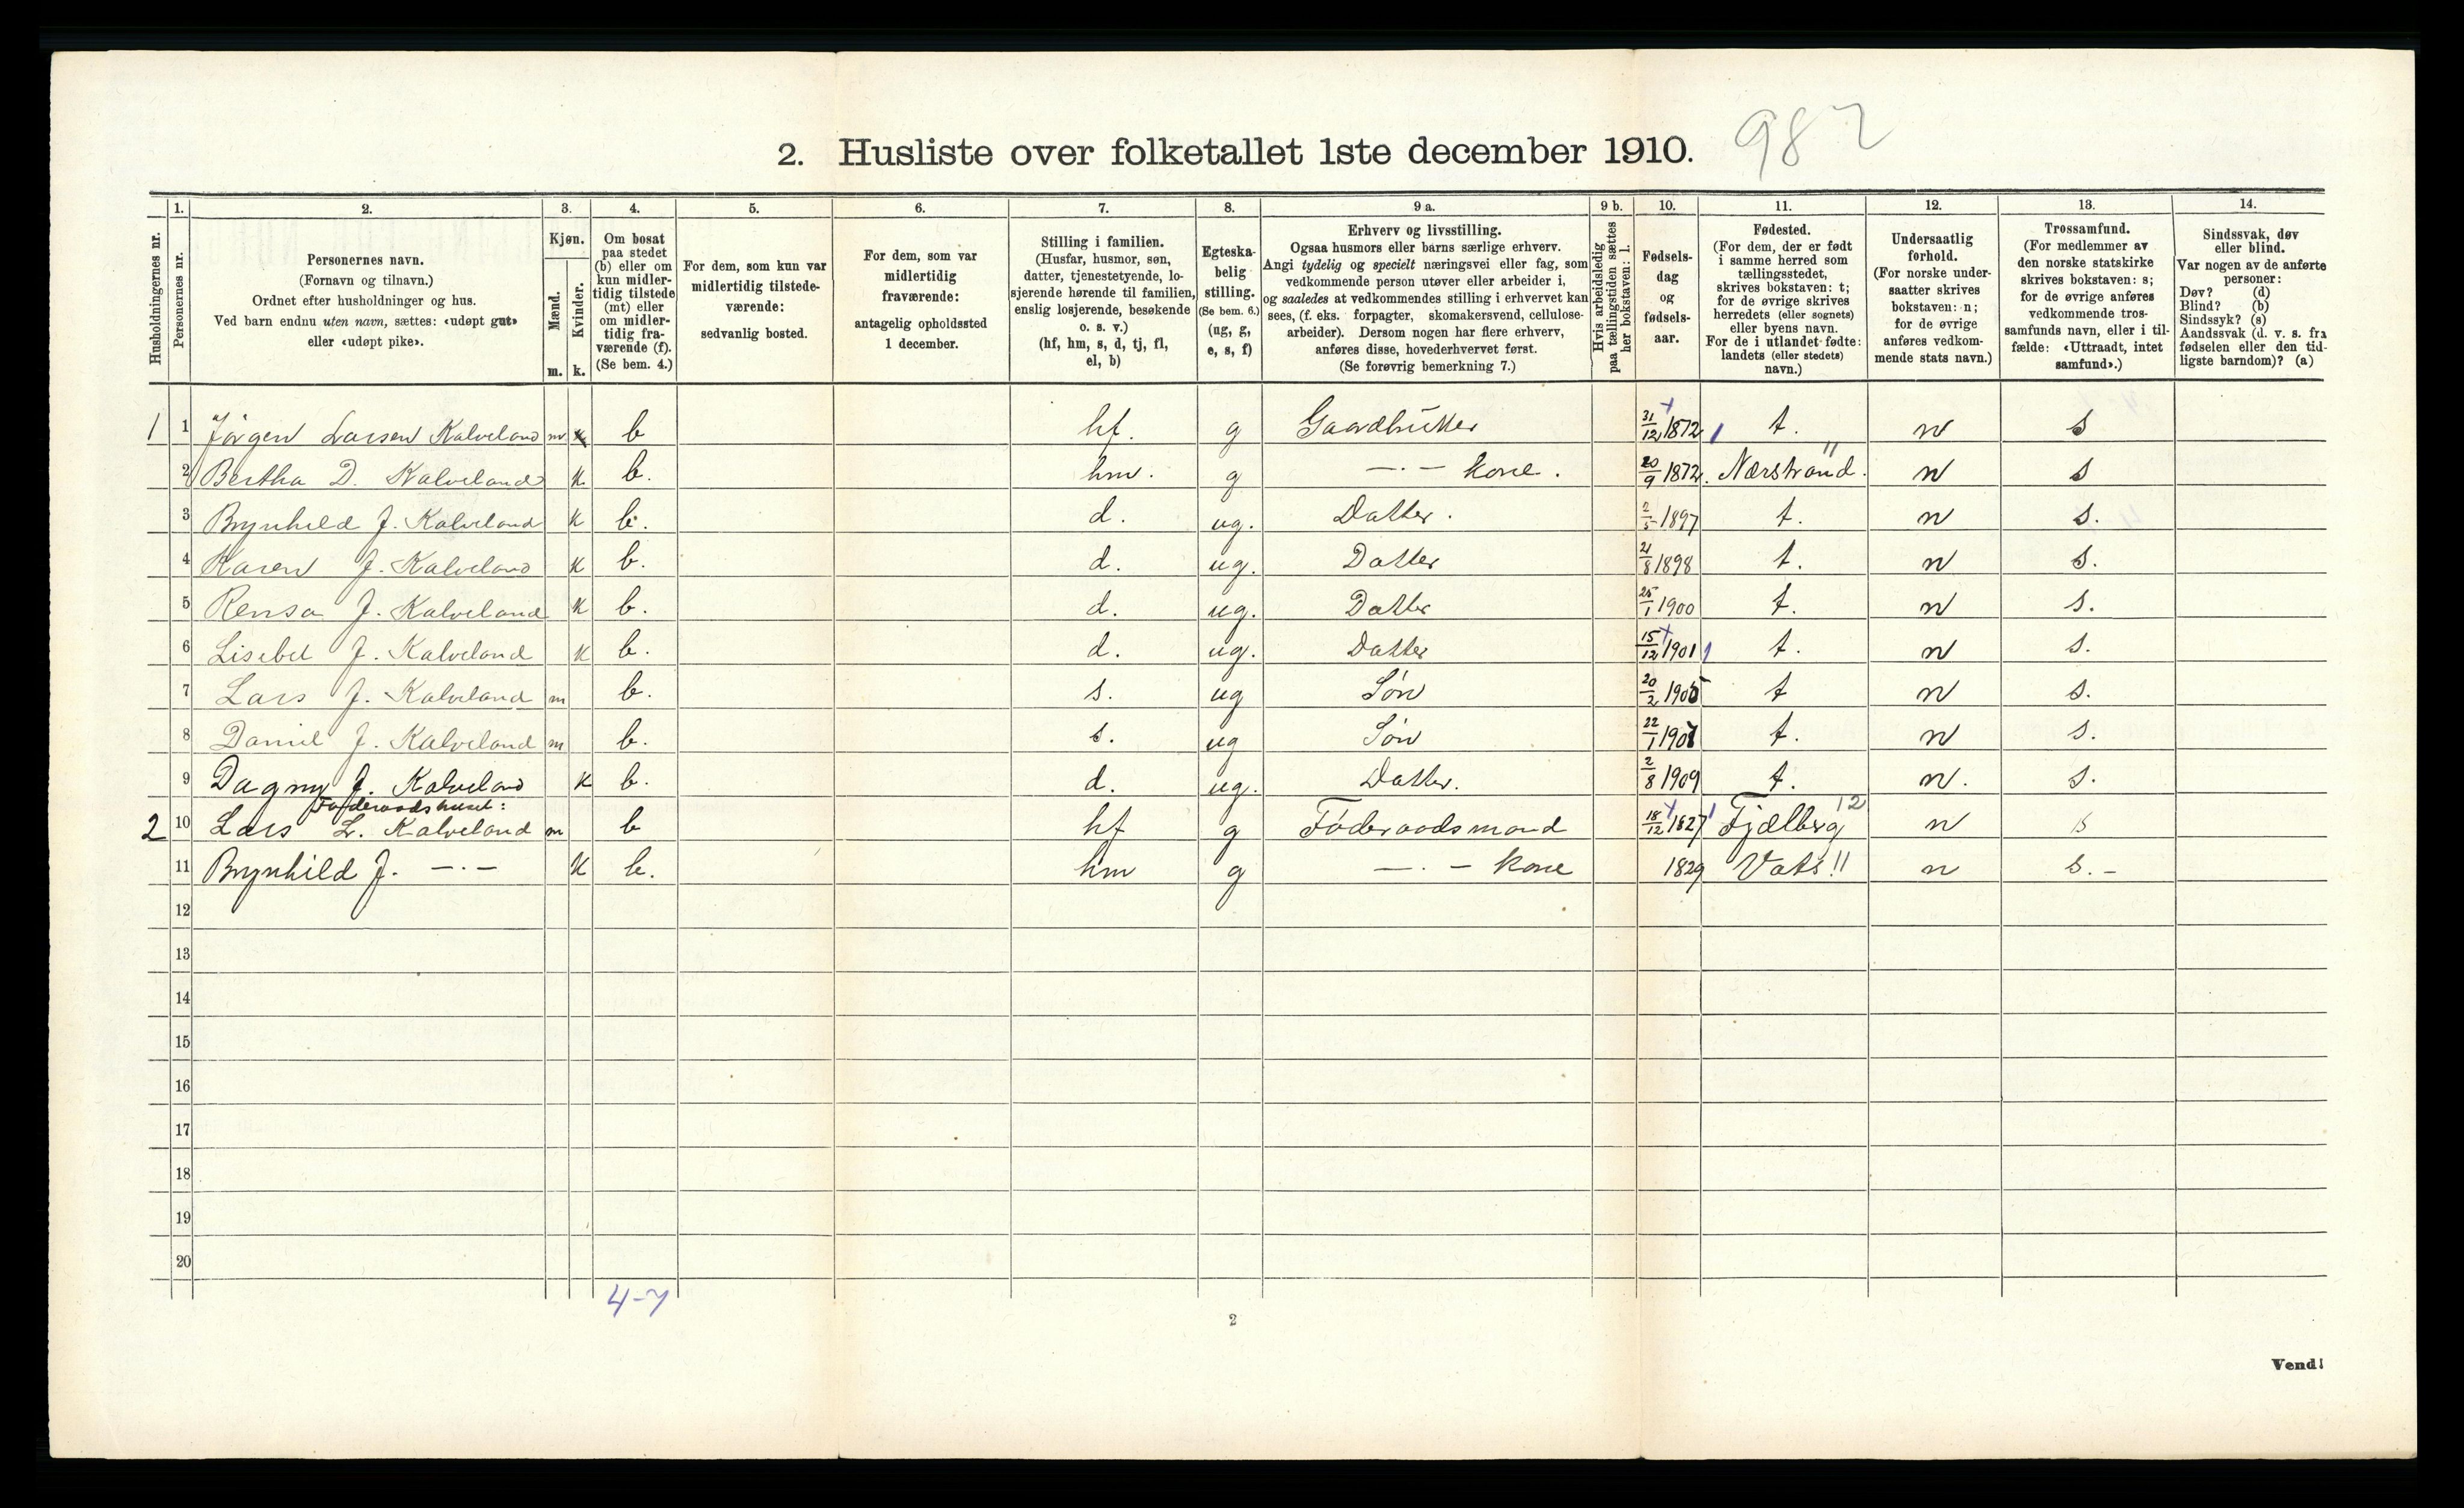 982
2. Husliste over folketallet 1ste december 1910.
Husholdningernes nr.
1. Personernes nr.
2. Personernes navn. (Fornavn og tilnavn.) Ordnet efter husholdninger og hus. Ved barn endnu uten navn, sættes: «udøpt gut» eller «udøpt pike».
3. Kjøn. Mænd. m. Kvinder. k.
4. Om bosat paa stedet (b) eller om kun midlertidig tilstede (mt) eller om midlertidig fraværende (f). (Se bem. 4.)
5. For dem, som kun var midlertidig tilstedeværende: sedvanlig bosted.
6. For dem, som var midlertidig fraværende: antagelig opholdssted 1 december.
7. Stilling i familien. (Husfar, husmor, søn, datter, tjenestetyende, losjerende hørende til familien, enslig losjerende, besøkende o. s. v.) (hf, hm, s, d, tj, fl, el, b)
8. Egteskabelig stilling. (Se bem. 6.) (ug, g, e, s, f)
9 a. Erhverv og livsstilling. Ogsaa husmors eller barns særlige erhverv. Angi tydelig og specielt næringsvei eller fag, som vedkommende person utøver eller arbeider i, og saaledes at vedkommendes stilling i erhvervet kan sees, (f. eks. forpagter, skomakersvend, cellulosearbeider). Dersom nogen har flere erhverv, anføres disse, hovederhvervet først. (Se forøvrig bemerkning 7.)
9 b. Hvis arbeidsledig paa tællingstiden sættes her bokstaven: l.
10. Fødselsdag og fødselsaar.
11. Fødested. (For dem, der er født i samme herred som tællingsstedet, skrives bokstaven: t; for de øvrige skrives herredets (eller sognets) eller byens navn. For de i utlandet fødte: landets (eller stedets) navn.)
12. Undersaatlig forhold. (For norske undersaatter skrives bokstaven: n; for de øvrige anføres vedkommende stats navn.)
13. Trossamfund. (For medlemmer av den norske statskirke skrives bokstaven: s; for de øvrige anføres vedkommende trossamfunds navn, eller i tilfælde: «Uttraadt, intet samfund».)
14. Sindssvak, døv eller blind. Var nogen av de anførte personer: Døv? (d) Blind? (b) Sindssyk? (s) Aandssvak (d. v. s. fra fødselen eller den tidligste barndom)? (a)
1 1 Jørgen Larsen Kalveland m k b hf. g Gaardbruker 31/12 1872 t. n s
2 Bertha D. Kalveland k b. hm. g —·— kone. 20/9 1872. Nærstrand. 11 n s
3 Brynhild J. Kalveland k b. d. ug. Datter. 2/5 1897 t. n s.
4 Karen J. Kalveland k b. d. ug. Datter 21/8 1898 t. n s.
5 Rensa J. Kalveland k b. d. ug. Datter 25/1 1900 t. n s.
6 Lisebet J. Kalveland k b. d. ug. Datter 15/12 1901 t. n s.
7 Lars J. Kalveland m b. s. ug Søn 20/2 1905 t n s.
8 Daniel J. Kalveland m b. s. ug Søn 22/1 1907 t. n s.
9 Dagny J. Kalveland k b. d. ug. Datter. 2/8 1909 t. n. s.
Føderaadshuset:
2 10 Lars L. Kalveland m b hf g Føderaadsmand 18/12 1827 Fjelberg 12 n s
11 Brynhild J. —·— k b. hm g —·— kone 1829 Vats 11 n s.-
12
13
14
15
16
17
18
19
20
4-7
2
Vend!